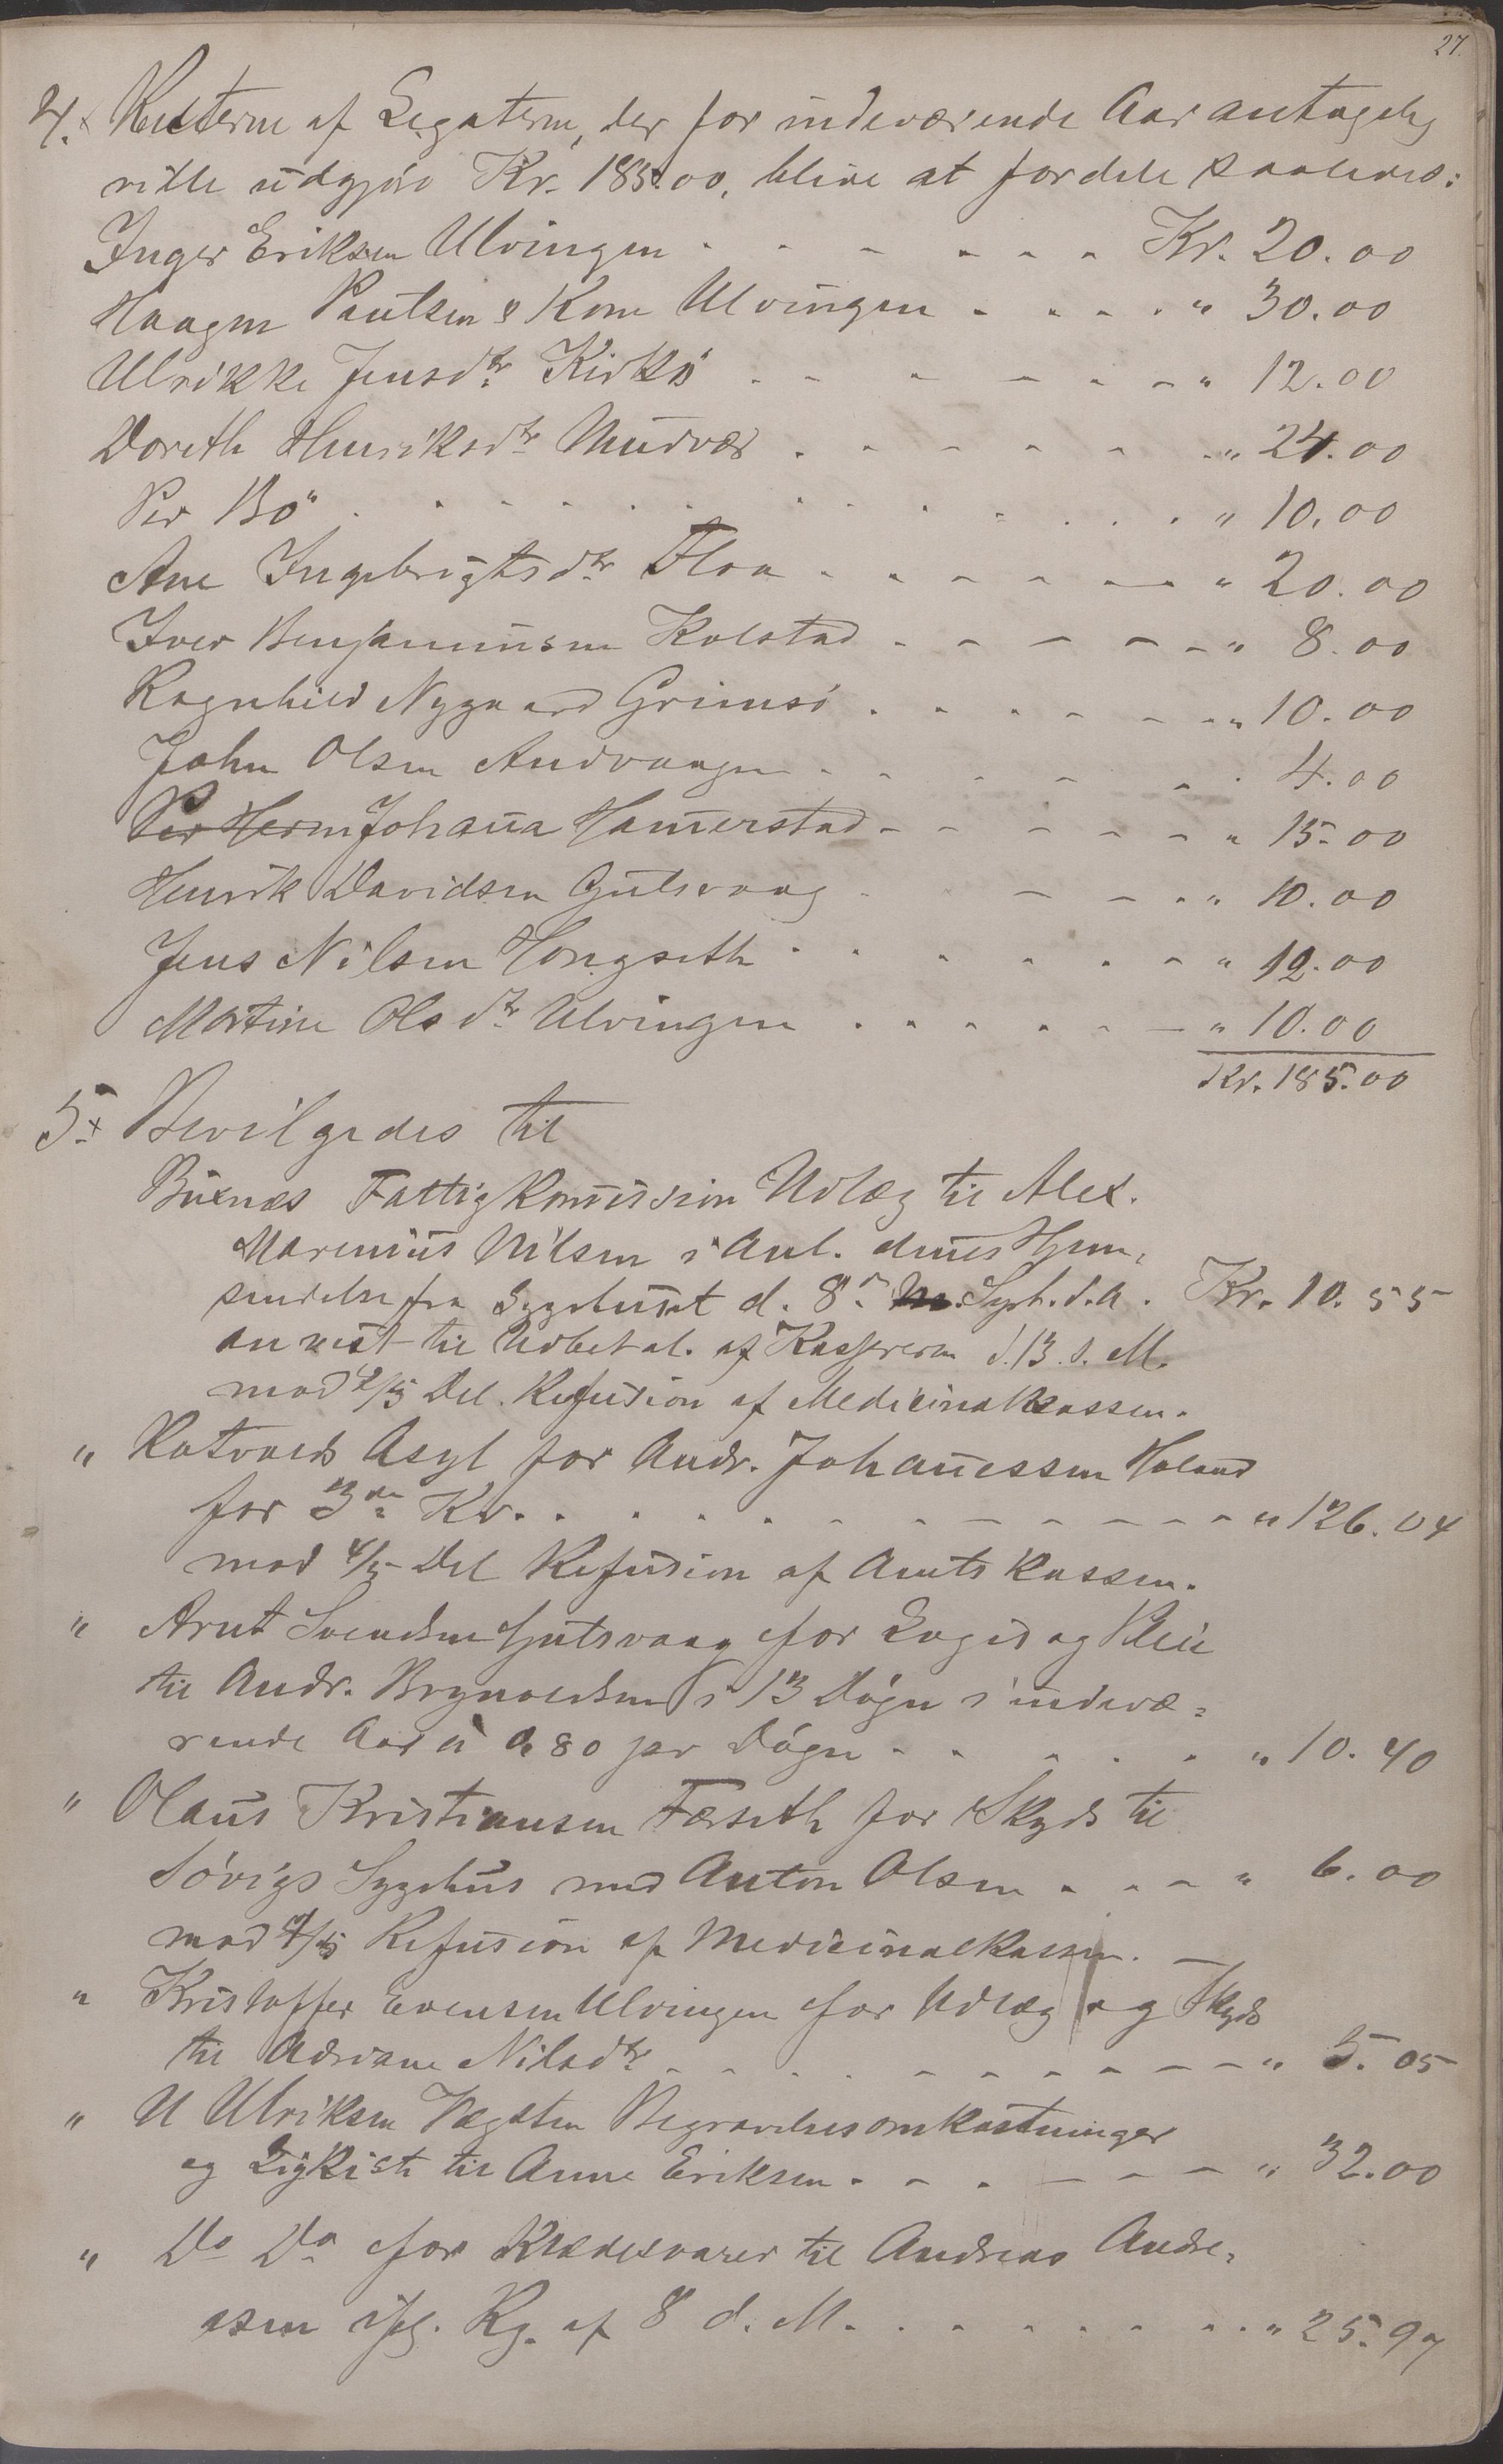 27.
4.x Renterne af Legaterne, der for indeværende Aar antagelig
ville udgjøre Kr. 185.00, blive at fordele saaledes:
Inger Eriksen Ulvingen - - - - - - Kr. 20.00
Haagen Paulsen & Kone Ulvingen - - - - " 30.00
Ulrikke Jensdtr Kirkö - - - - - - " 12.00
Doreth Henriksdtr Mudvær - - - - - " 24.00
Per Bö - - - - - - - - - " 10.00
Ane Ingebrigtsdtr Floa - - - - - - " 20.00
Iver Benjaminsen Kolstad - - - - - " 8.00
Ragnhild Nygaard Grimsö - - - - - - " 10.00
John Olsen Andvaagen - - - - - 4.00
Per Herm Johanna Hamerstad - - - - - " 15.00
Henrik Davidsen Gulsvaag - - - - " 10.00
Jens Nilsen Hongseth - - - - - - " 12.00
Martine Olsdtr Ulvingen - - - - - - " 10.00
Kr. 185.00
5.x Bevilgedes til
Buxnæs Fattigkommission Udlæg til Alex.
Marenius Nilsen i Anl. dennes Hjem-
sendelse fra Sygehuset d. 8de Septb. d.A. Kr. 10.55
anvist til Udbetal. af Kassereren d. 13. s. M.
mod 4/5 Del. Refusion af Medicinalkassen.
" Rotvolds Asyl for Andr. Johannessen Holand
for 3die Kv. - - - - - - - - - - " 126.04
mod 4/5 Del Refusion af Amtskassen.
" Arnt Svendsen Gulsvaag for Logis og Pleie
til Andr. Brynoldsen i 13 Døgn i indevæ-
rende Aar à 0.80 per Døgn - - - - - - " 10.40
" Olaus Kristiansen Færseth for Skyds til
Søvigs Sygehus med Anton Olsen - - - " 6.00
mod 4/5 Refusion af Medicinalkassen. -
" Kristoffer Evensen Ulvingen for Udlæg og Skyds
til Adriane Nilsdtr - - - - - - - - - " 5.05
" U Ulriksen Vægsten Begravelsesomkostninger
og Ligkiste til Anne Eriksen - - - - - - " 32.00
" Do Do for Klædesvarer til Andreas Andre-
asen ifl. Rg. af 8 d. M. - - - - - - - " 25.97